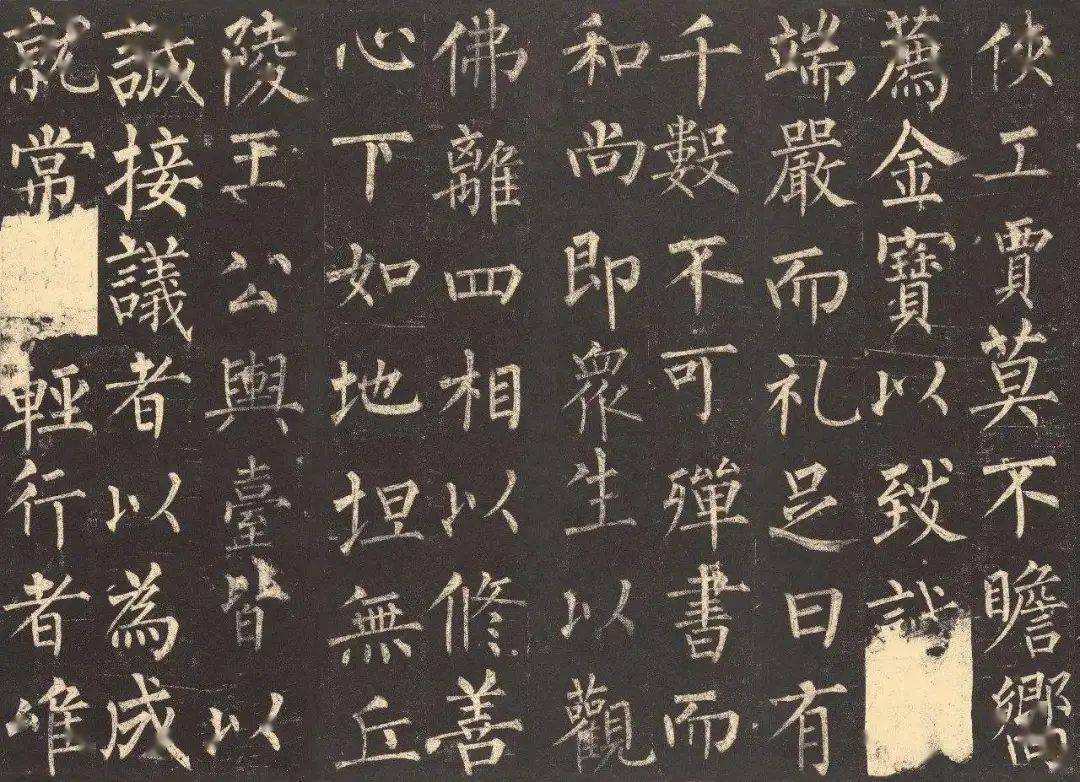 俠工賈莫不瞻嚮
薦金寶以致誠
端嚴而礼足日有
千數不可殫書而
和尚即眾生以觀
佛離四相以修善
心下如地坦無丘
陵王公輿臺皆以
誠接議者以為成
就常輕行者唯